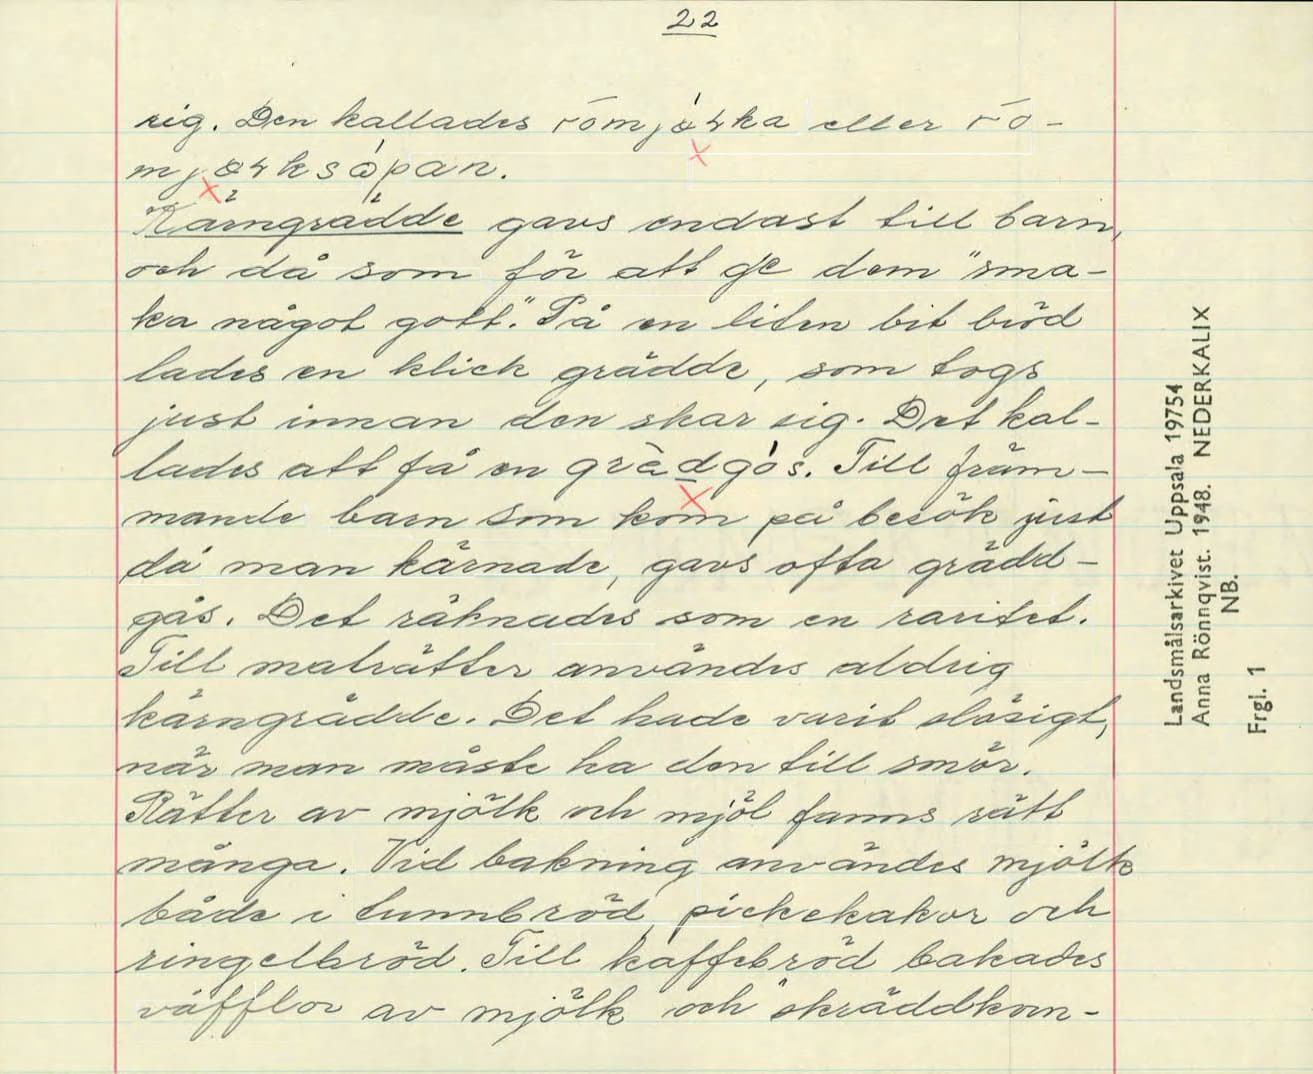 22
sig. Den kallades
Kärngrädde gavs endast till barn,
och då som för att ge dem "sma-
ka något gott". På en liten bit bröd
lades en klick grädde, som togs
just innan den skar sig. Det kal-
lades att få en grädgås. Till främ-
mande barn som kom på besök just
då man kärnade, gavs ofta grädd-
gås. Det räknades som en raritet.
Till maträtter användes aldrig
kärngrädde. Det hade varit slösigt,
när man måste ha den till smör.
Rätter av mjölk och mjöl fanns rätt
många. Vid bakning användes mjölk
både i tunnbröd, pickekakor och
ringelbröd. Till kaffebröd bakades
våfflor av mjölk och "skräddkorn-
Landsmålsarkivet Uppsala 19754
Anna Rönnqvist. 1948. NEDERKALIX
NB.
Frgl. 1